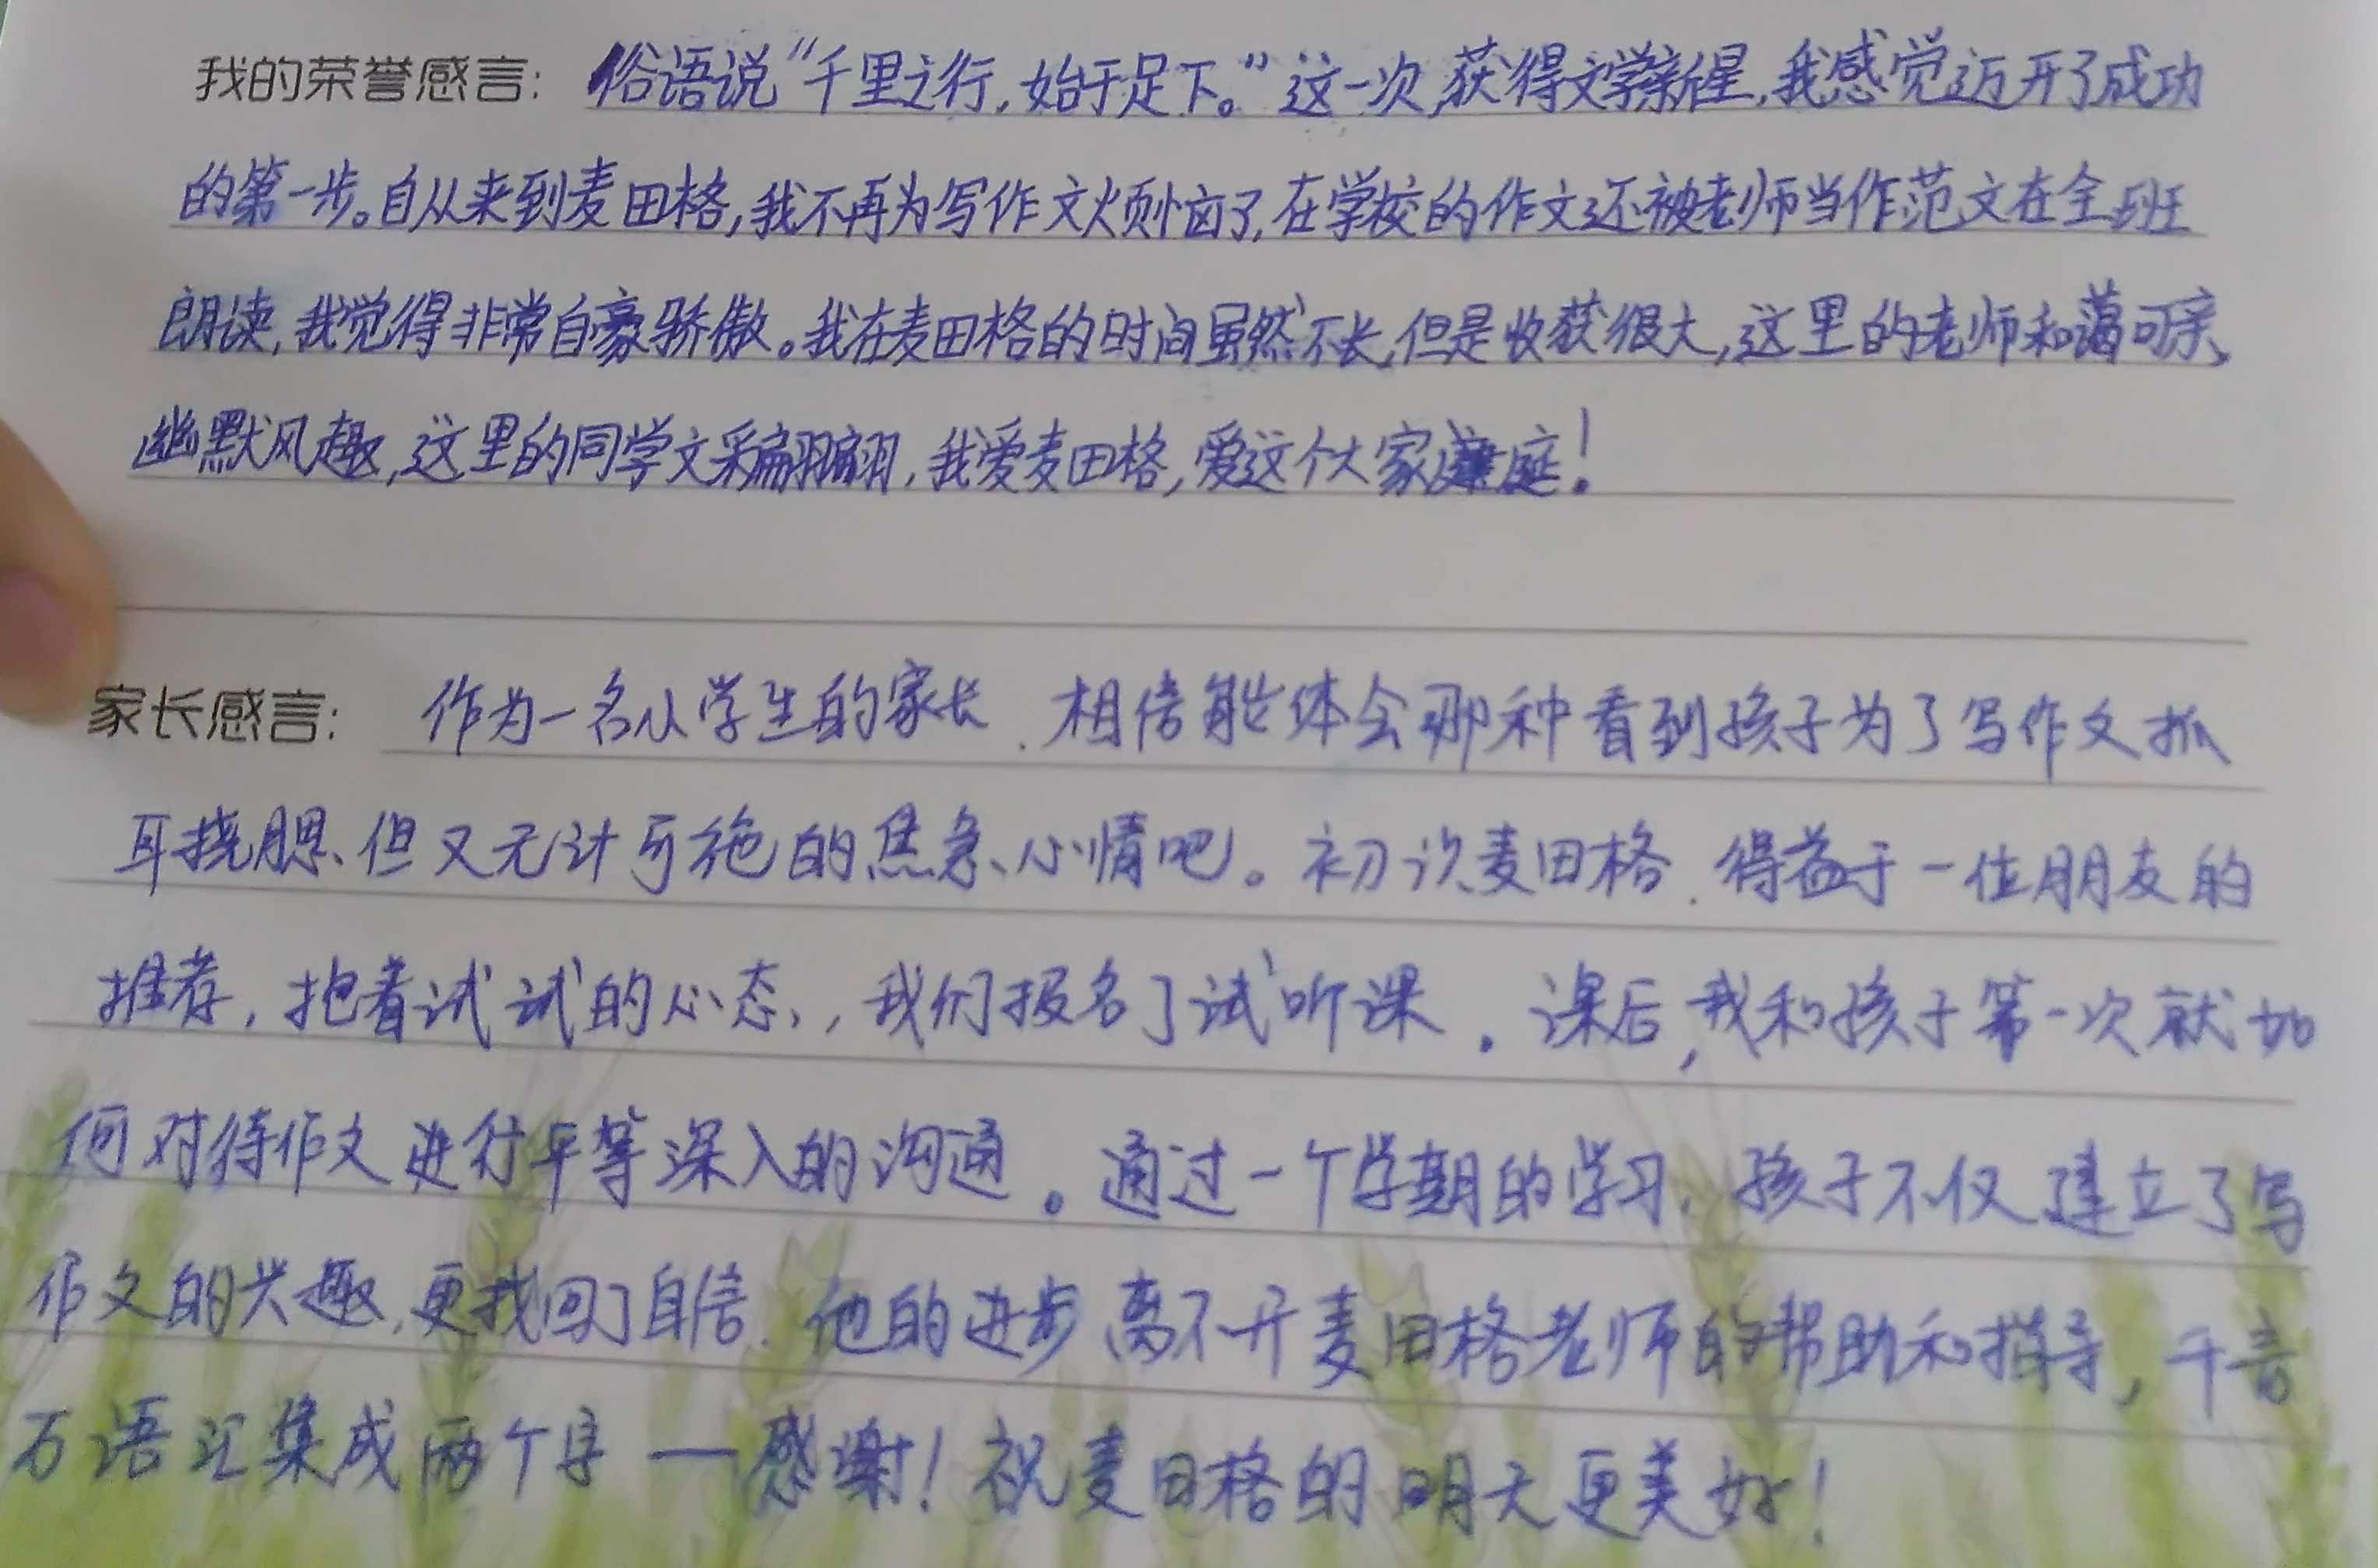 我的荣誉感言：俗语说“千里之行，始于足下。”这一次,获得文学新星,我感觉迈开了成功
的第一步。自从来到麦田格,我不再为写作文烦恼了,在学校的作文还被老师当作范文在全班
朗读,我觉得非常自豪骄傲。我在麦田格的时间虽然不长,但是收获很大,这里的老师和蔼可亲、
幽默风趣,这里的同学文采翩翩,我爱麦田格,爱这个大家庭！
家长感言：作为一名小学生的家长,相信能体会那种看到孩子为了写作文抓
耳挠腮、但又无计可施的焦急心情吧。初识麦田格,得益于一位朋友的
推荐,抱着试试的心态,我们报名了试听课。课后,我和孩子第一次就如
何对待作文进行平等深入的沟通。通过一个学期的学习,孩子不仅建立了写
作文的兴趣,更找回了自信.他的进步离不开麦田格老师的帮助和指导,千言
万语汇集成两个字——感谢！祝麦田格的明天更美好！